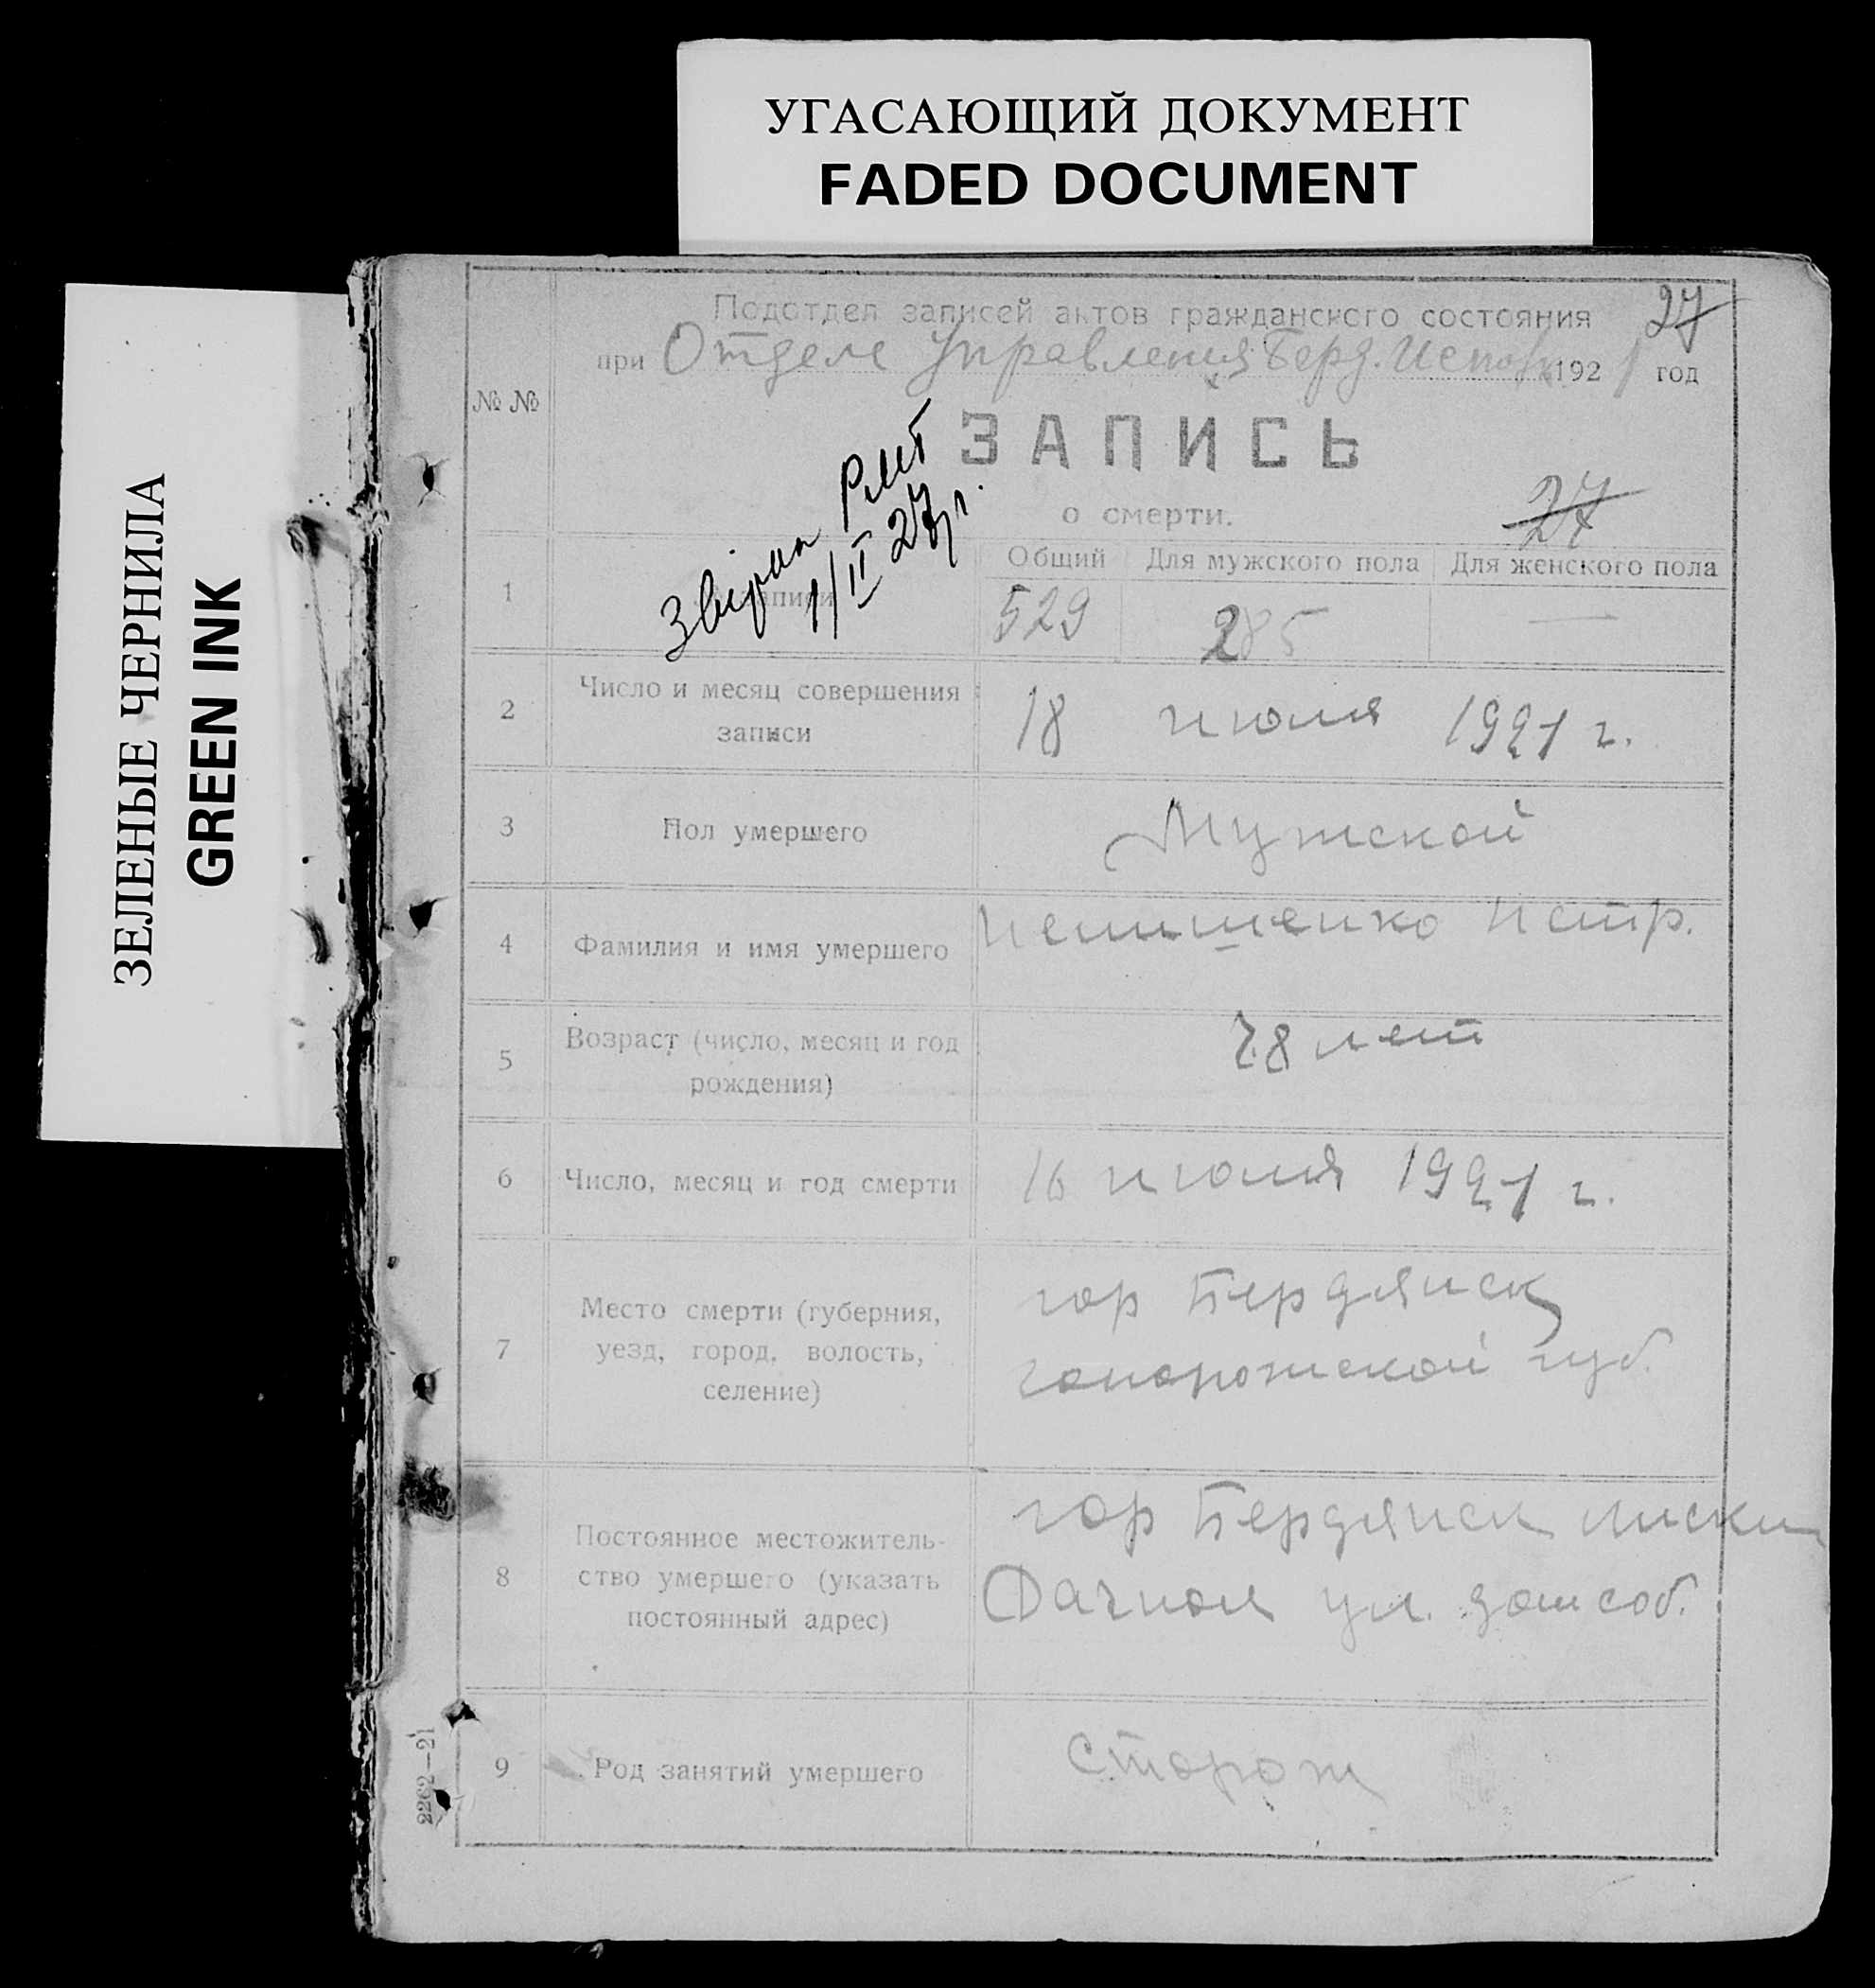 УГАСАЮЩИЙ ДОКУМЕНТ
FADED DOCUMENT
ЗЕЛЕНЫЕ ЧЕРНИЛА
GREEN INK
Подотдел записей актов гражданского состояния 27
при Отделе Управления Берд. Исполк 1921 год
№ №
ЗАПИСЬ
о смерти.
27
Звіряв
1/II 27 р.
Общий Для мужского пола Для женского пола
1 529 285 —
2 Число и месяц совершения
записи
18 июля 1921 г.
3 Пол умершего Мужской
4 Фамилия и имя умершего Петр.
5 Возраст (число, месяц и год
рождения)
78 лет
6 Число, месяц и год смерти 16 июля 1921 г.
7 Место смерти (губерния,
уезд, город, волость,
селение)
гор Бердянск
Запорожской губ.
8 Постоянное местожитель-
ство умершего (указать
постоянный адрес)
гор Бердянск Лиски
Дачная ул. дом соб.
9 Род занятий умершего Сторож
2262—21